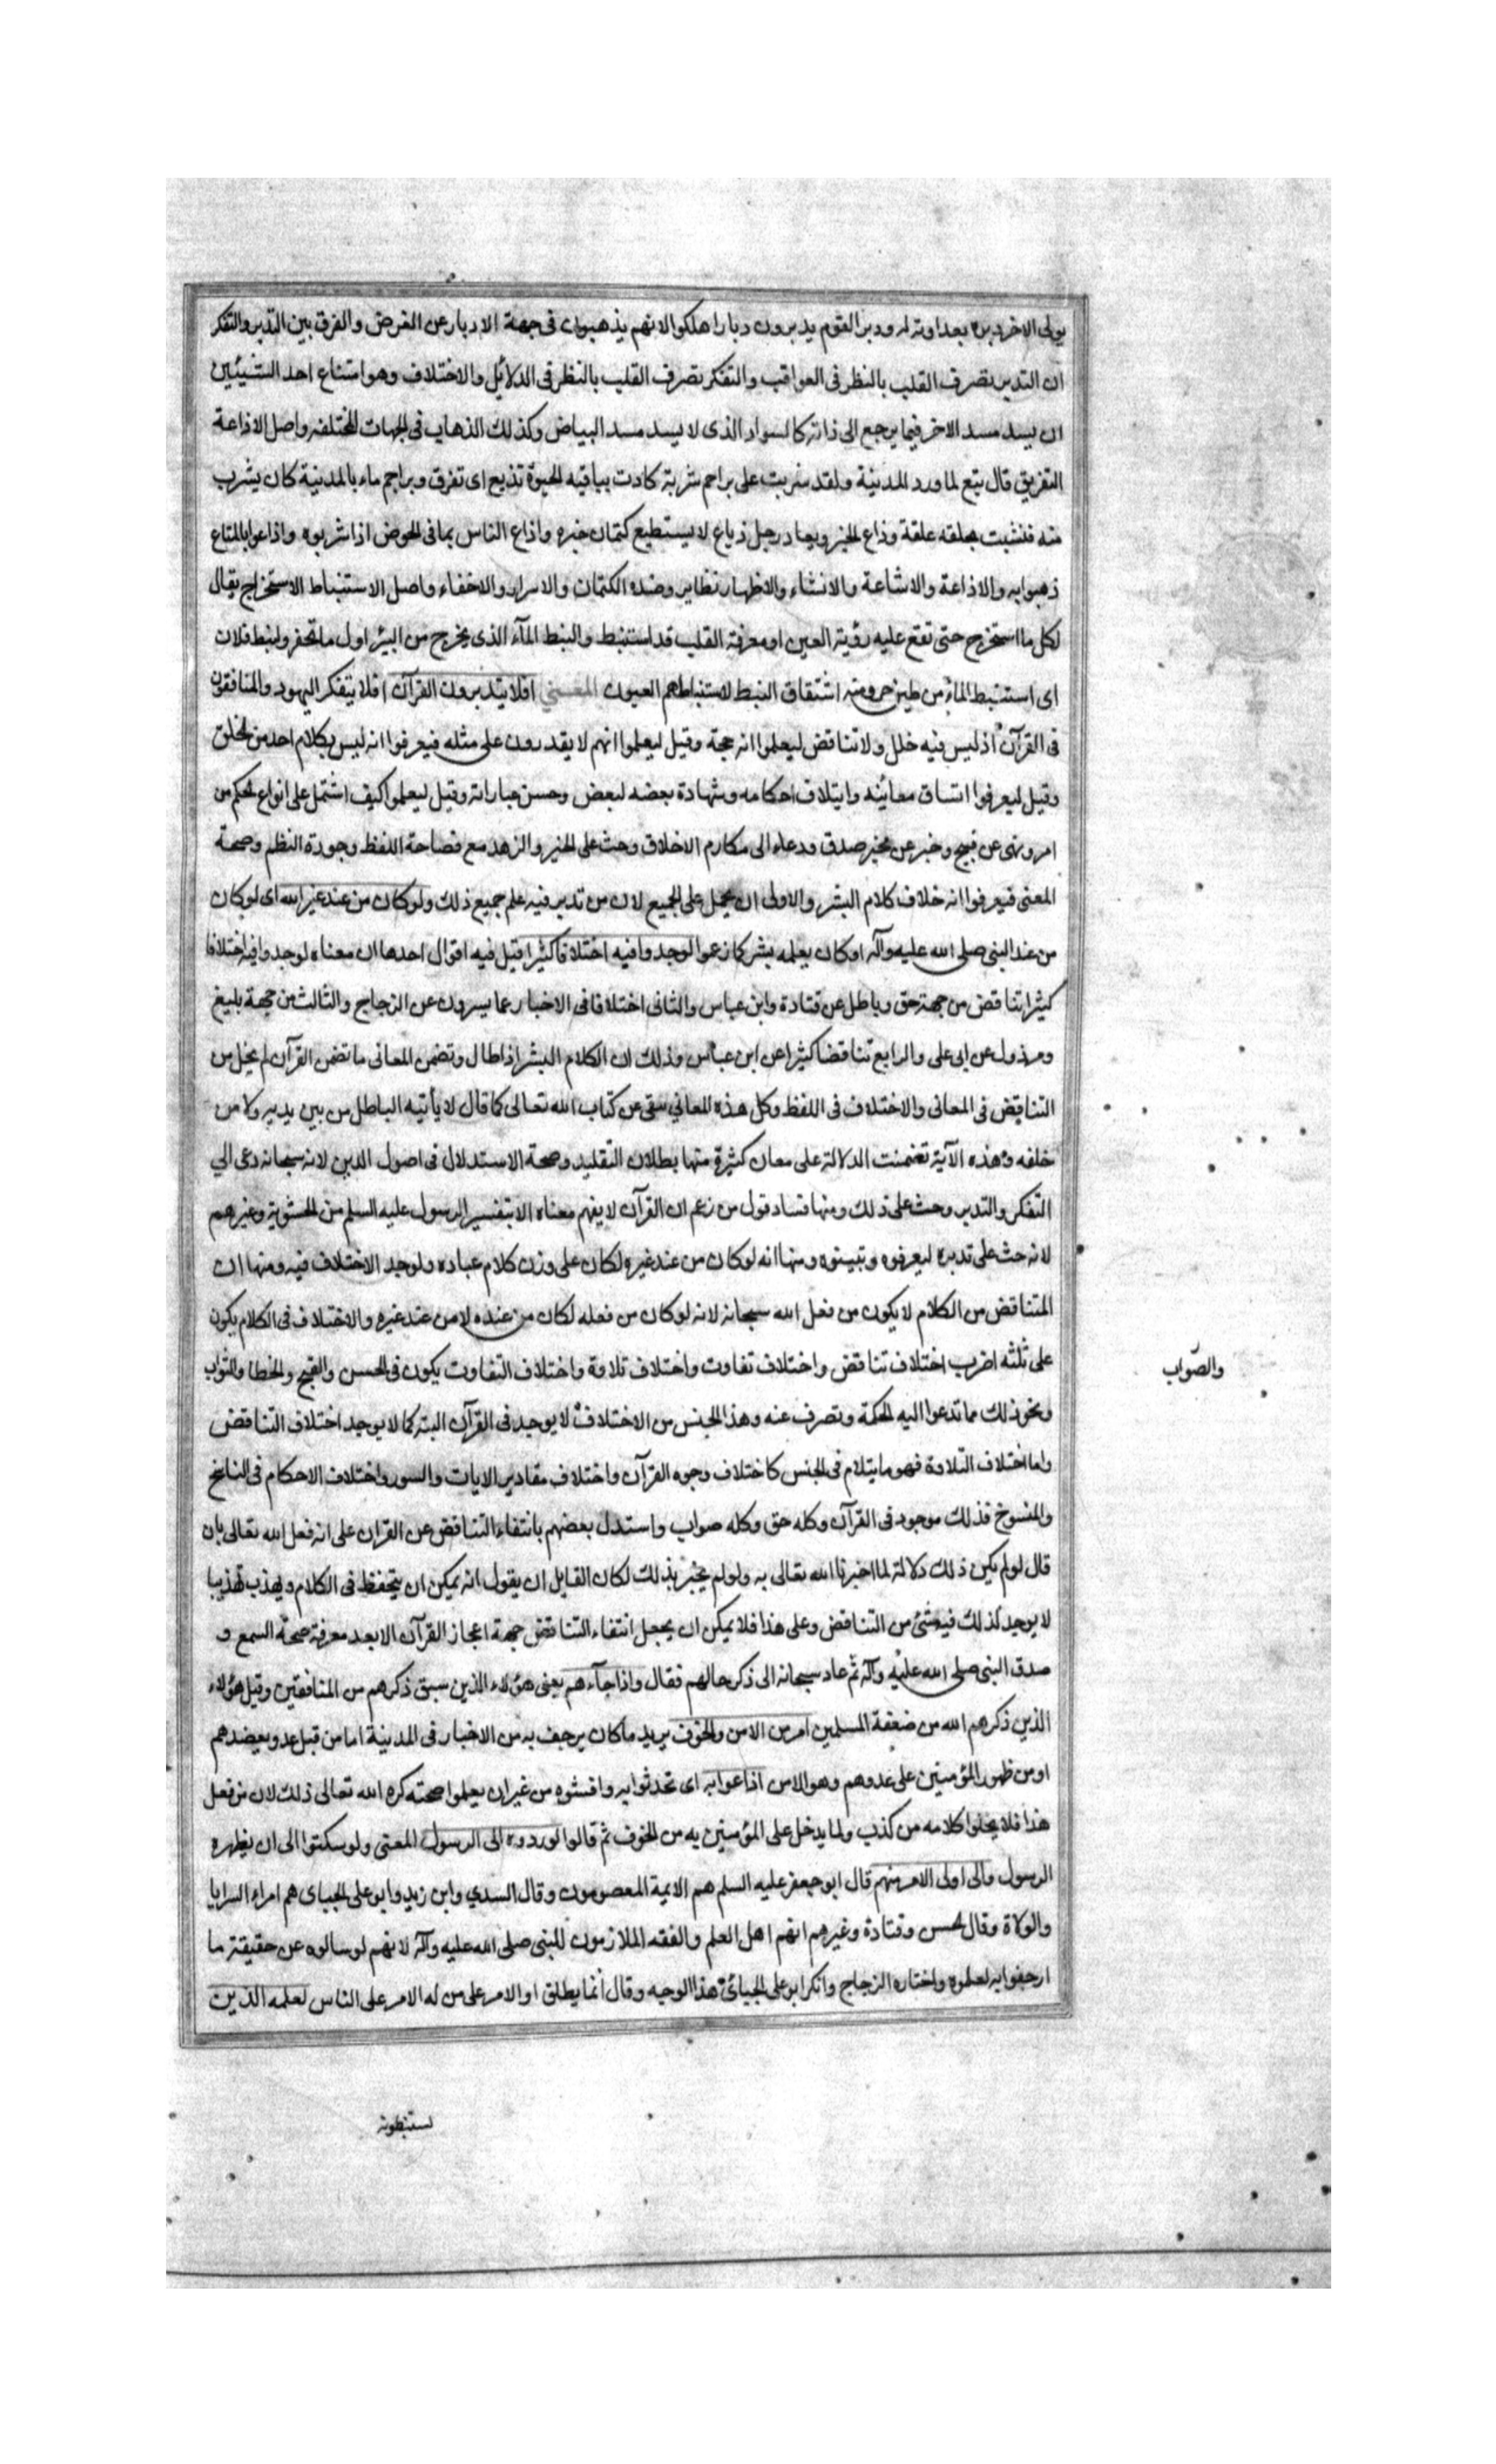 يولى الاخر دبره بعداوته له ودبر القوم يدبرون دبارا هلكوا لانهم يذهبون فى جهة الادبار عن الغرض والفرق بين التدبر والتفكر
ان التدبر تصرف القلب بالنظر فى العواقب والتفكر تصرف القلب بالنظر فى الدلائل والاختلاف وهو امتناع احد الشيئين
ان يسد مسد الاخر فيما يرجع الى ذاته كالسواد الذى لا يسد مسد البياض وكذلك الذهاب فى الجهات المختلفه واصل الاذاعة
التفريق قال تبع لما ورد المدينة ولقد شربت على براجم شربة كادت بباقيه الحيوة تذيع اى تفرق وبراجم ماء بالمدينة كان يشرب
منه فنشبت بحلقه علقة وذاع الخبر ذيعا ورجل ذياع لا يستطيع كتمان خبره واذاع الناس بما فى الحوض اذا شربوه واذاعوا بالمتاع
ذهبوا به والاذاعة والاشاعة والافشاء والاظهار نظاير وضده الكتمان والاسرار والاخفاء واصل الاستنباط الاستخراج يقال
لكل ما استخرج حتى تقع عليه رؤية العين او معرفة القلب قد استنبط والنبط المآء الذى يخرج من البئر اول ما تحفر وانبط فلان
اى استنبط الماء من طين حر ومنه اشتقاق النبط لاستنباطهم العيون المعنى افلا يتدبرون القرآن افلا يتفكر اليهود والمنافقون
فى القرآن اذ ليس فيه خلل ولا تناقض ليعلموا انه حجة وقيل ليعلموا انهم لا يقدرون على مثله فيعرفوا انه ليس بكلام احد من الخلق
وقيل ليعرفوا اتساق معانيه وايتلاف احكامه وشهادة بعضه لبعض وحسن عباراته وقيل ليعلموا كيف اشتمل على انواع الحكم من
امر ونهى عن قبيح وخبر عن مخبر صدق ودعاء الى مكارم الاخلاق وحث على الخير والزهد مع فصاحة اللفظ وجودة النظم وصحة
المعنى فيعرفوا انه خلاف كلام البشر والاولى ان يحمل على الجميع لان من تدبر فيه علم جميع ذلك ولو كان من عند غير الله اى لو كان
من عند النبى صلى الله عليه وآله او كان يعلمه بشر كما زعموا لوجدوا فيه اختلافا كثيرا قيل فيه اقوال احدها ان معناه لوجدوا فيه اختلافا
كثيرا تناقض من جهة حق وباطل عن قتادة وابن عباس والثانى اختلافا فى الاخبار عما يسرون عن الزجاج والثالث من جهة بليغ
ومرذول عن ابى على والرابع تناقضا كثيرا عن ابن عباس وذلك ان الكلام البشر اذا طال وتضمن المعانى ما تضمن القرآن لم يخل من
التناقض فى المعانى والاختلاف فى اللفظ وكل هذه المعانى منفى عن كتاب الله تعالى كما قال لا يأتيه الباطل من بين يديه ولا من
خلفه وهذه الآية تضمنت الدلالة على معان كثيرة منها بطلان التقليد وصحة الاستدلال فى اصول الدين لانه سبحانه دعى الى
التفكر والتدبر وحث على ذلك ومنها فساد قول من زعم ان القرآن لا يفهم معناه الا بتفسير الرسول عليه السلم من الحشوية وغيرهم
لانه حث على تدبره ليعرفوه وتبينوه ومنها انه لو كان من عند غيره لكان على وزن كلام عباده ولوجد الاختلاف فيه ومنها ان
المتناقض من الكلام لا يكون من فعل الله سبحانه لانه لو كان من فعله لكان من عنده لا من عند غيره والاختلاف فى الكلام يكون
على ثلثه اضرب اختلاف تناقض واختلاف تفاوت واختلاف تلاوة واختلاف التفاوت يكون فى الحسن والقبح والخطا والثواب
والصواب
ونحو ذلك مما تدعوا اليه الحكمة وتصرف عنه وهذا الجنس من الاختلاف لا يوجد فى القرآن البته كما لا يوجد اختلاف التناقض
واما اختلاف التلاوة فهو ما يتلام فى الجنس كاختلاف وجوه القرآن واختلاف مقادير الايات والسور واختلاف الاحكام فى الناسخ
والمنسوخ فذلك موجود فى القرآن وكله حق وكله صواب واستدل بعضهم بانتفاء التناقض عن القران على انه فعل الله تعالى بان
قال لو لم يكن ذلك دلالة لما اخبرنا الله تعالى به ولو لم يخبر بذلك لكان القايل ان يقول انه يمكن ان يتحفظ فى الكلام ويهذب تهذيبا
لا يوجد كذلك فيه شئ من التناقض وعلى هذا فلا يمكن ان يجعل انتفاء التناقض جهة اعجاز القرآن الا بعد معرفة صحة السمع و
صدق النبى صلى الله عليه وآله ثم عاد سبحانه الى ذكر حالهم فقال واذا جآءهم يعنى هؤلاء الذين سبق ذكرهم من المنافقين وقيل هؤلاء
الذين ذكرهم الله من ضعفة المسلمين امر من الامن والخوف يريد ما كان يرجف به من الاخبار فى المدينة اما من قبل عدو يقصدهم
او من ظهور المؤمنين على عدوهم وهو الامن اذاعوا به اى تحدثوا به وافشوه من غير ان يعلموا صحته كره الله تعالى ذلك لان من فعل
هذا فلا يخلوا كلامه من كذب ولما يدخل على المؤمنين به من الخوف ثم قالوا لو ردوه الى الرسول المعنى ولو سكتوا الى ان يظهره
الرسول والى اولى الامر منهم قال ابو جعفر عليه السلم هم الايمة المعصومون وقال السدي وابن زيد وابو على الجبياى هم امراء السرايا
والولاة وقال الحسن وقتادة وغيرهم انهم اهل العلم والفقه الملازمون للنبى صلى الله عليه وآله لانهم لو سالوه عن حقيقة ما
ارجفوا به لعلموه واختاره الزجاج وانكر ابو على الجبيائى هذا الوجه وقال انما يطلق اولا الامر على من له الامر على الناس لعلمه الذين
يستنبطونه